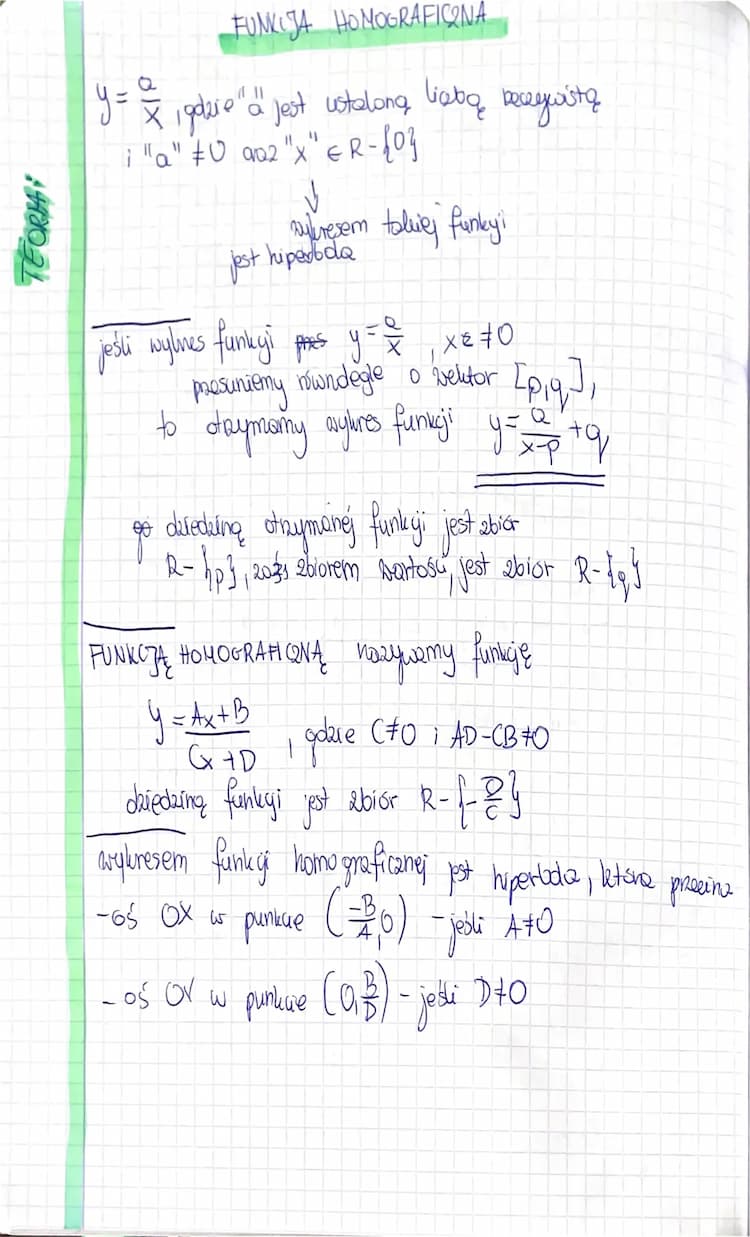 FUNKCJA HOMOGRAFICZNA
TEORIA:
y = a/x, gdzie "a" jest ustaloną liczbą rzeczywistą
i "a" ≠ 0 oraz "x" ∈ R-{0}
↓
wykresem takiej funkcji
jest hiperbola
jeśli wykres funkcji y = a/x, x ≠ 0
przesuniemy równolegle o wektor [p,q],
to otrzymamy wykres funkcji y = a/(x-p) + q
dziedziną otrzymanej funkcji jest zbiór
R-{p}, zaś zbiorem wartości, jest zbiór R-{q}
FUNKCJĄ HOMOGRAFICZNĄ nazywamy funkcję
y = (Ax+B)/(Cx+D), gdzie C≠0 i AD-CB≠0
dziedziną funkcji jest zbiór R-{-D/C}
wykresem funkcji homograficznej jest hiperbola, która przecina
-oś OX w punkcie (-B/A, 0) - jeśli A≠0
-oś OY w punkcie (0, B/D) - jeśli D≠0